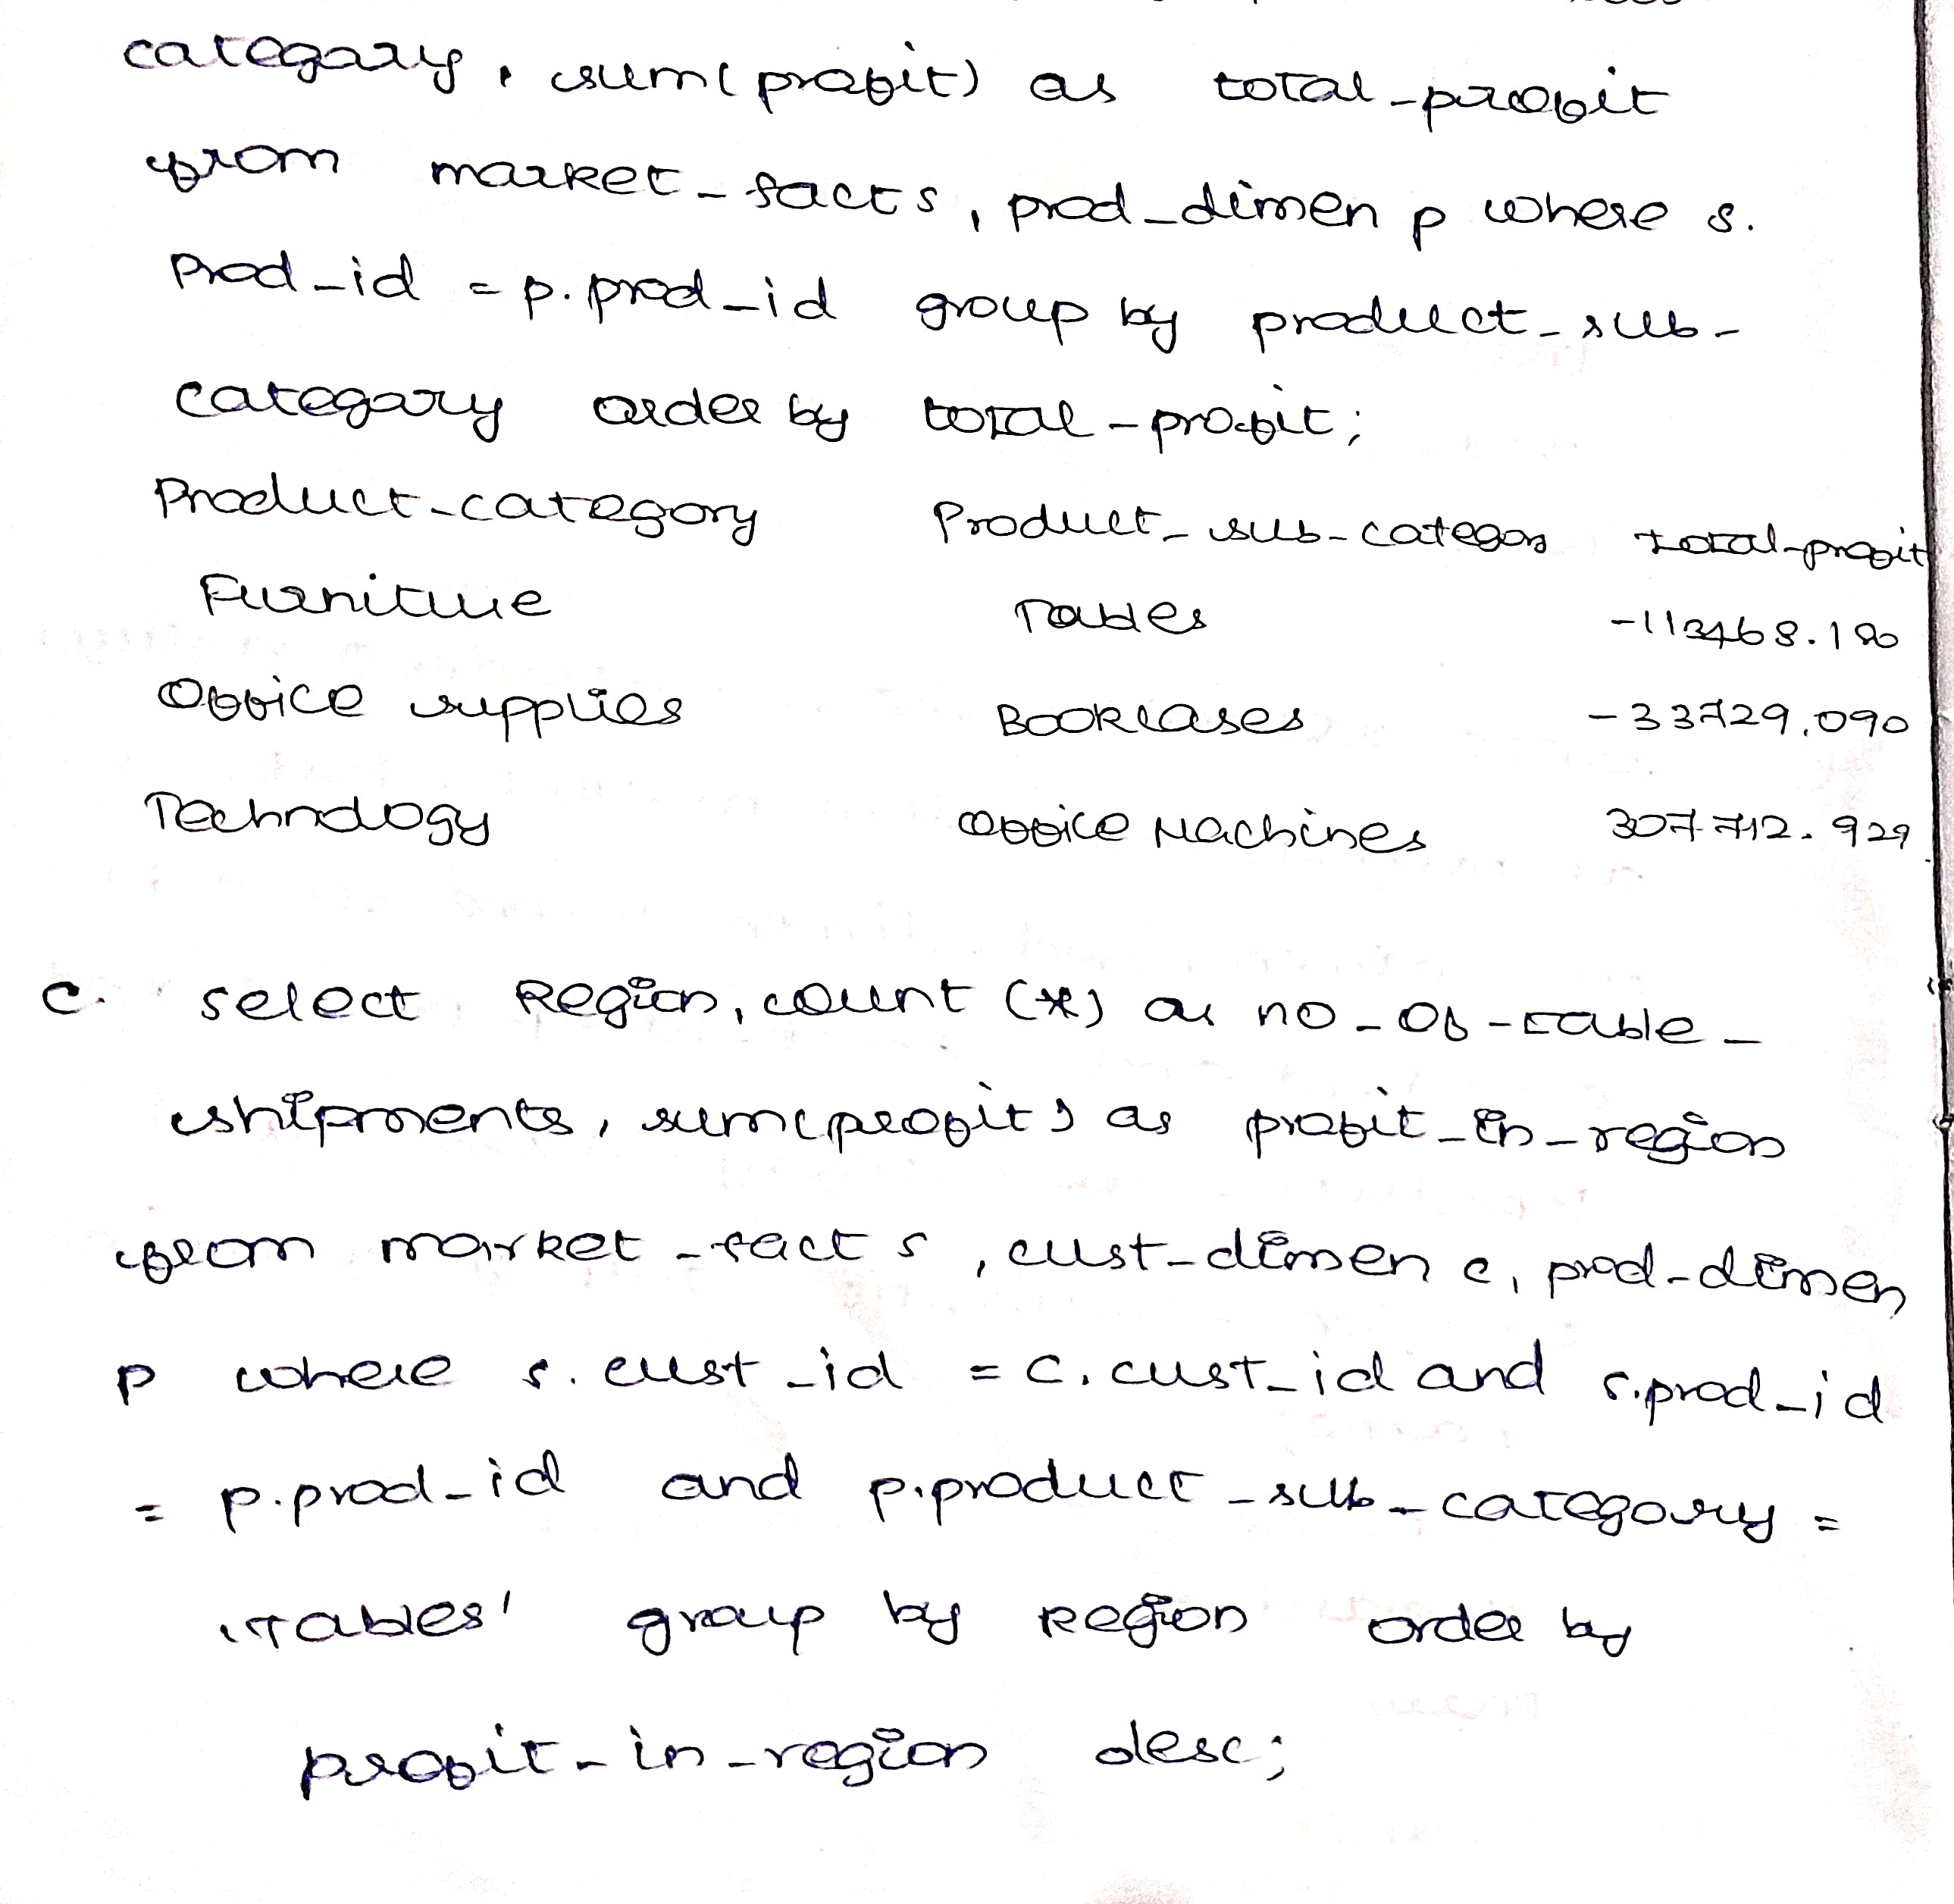 category, sum(profit) as total-profit
from market-facts, prod-dimen p where s.
Prod-id = p.prod-id group by product-sub-
category order by total-profit;
Product-category Product-sub-category total-profit
Furniture Tables
Office supplies Bookcases -33729.090
Technology Office Machines 307712.929
c. select Region, count (*) as no-of-table-
shipments, sum(profit) as profit-in-region
from market-fact s, cust-dimen c, prod-dimen
p where s.cust-id = c.cust-id and s.prod-id
= p.prod-id and p.product-sub-category =
'Tables' group by Region order by
profit-in-region desc;